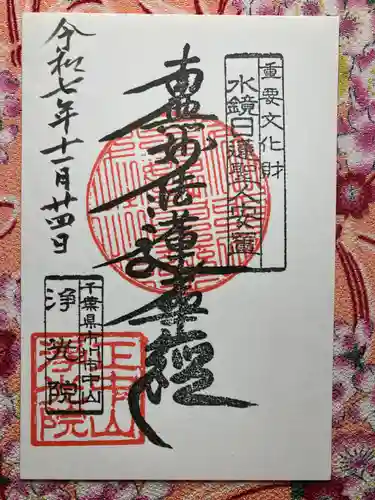 重要文化財
水鏡日蓮聖人安置
南無妙法蓮華経
令和七年十一月廿四日
千葉県市川市中山
浄光院
正中山
浄光院